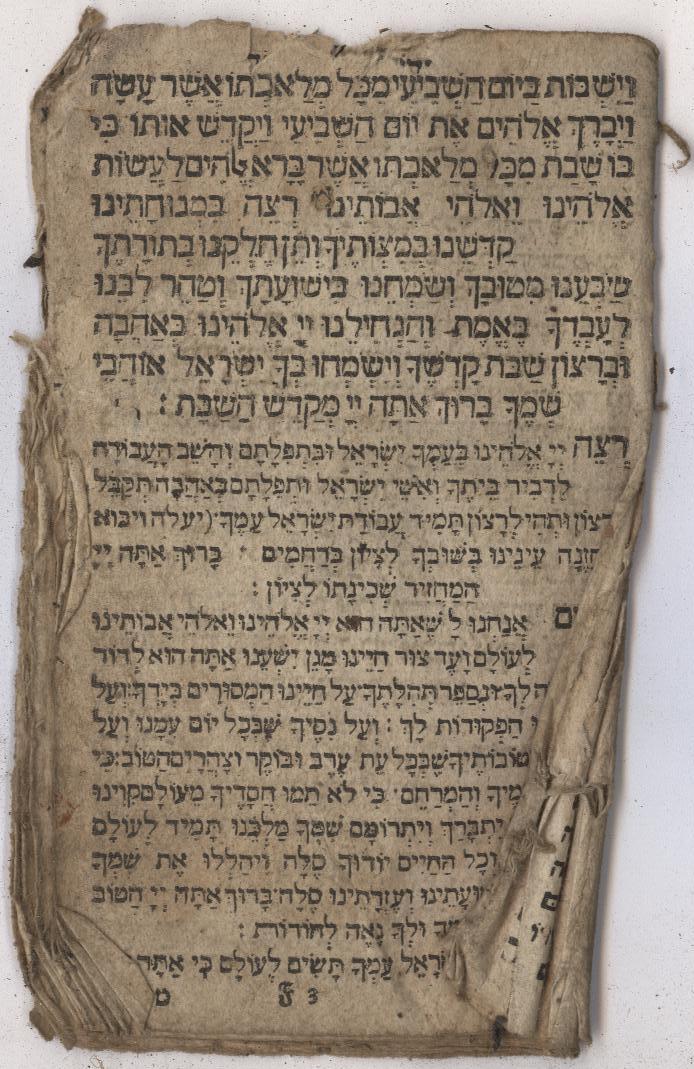 וַיִּשְׁבּוֹת בַּיּוֹם הַשְּׁבִיעִי מִכָּל מְלַאכְתּוֹ אֲשֶׁר עָשָׂה
וַיְבָרֶךְ אֱלֹהִים אֶת יוֹם הַשְּׁבִיעִי וַיְקַדֵּשׁ אוֹתוֹ כִּי
בוֹ שָׁבַת מִכָּל מְלַאכְתּוֹ אֲשֶׁר בָּרָא אֱלֹהִים לַעֲשׂוֹת
אֱלֹהֵינוּ וֵאלֹהֵי אֲבוֹתֵינוּ רְצֵה בִמְנוּחָתֵינוּ
קַדְּשֵׁנוּ בְּמִצְוֹתֶיךָ וְתֵן חֶלְקֵנוּ בְּתוֹרָתֶךָ
שַׂבְּעֵנוּ מִטּוּבָךְ וְשַׂמְּחֵנוּ בִּישׁוּעָתֶךָ וְטַהֵר לִבֵּנוּ
לְעָבְדְּךָ בֶּאֱמֶת וְהַנְחִילֵנוּ יְיָ אֱלֹהֵינוּ בְּאַהֲבָה
וּבְרָצוֹן שַׁבַּת קָדְשֶׁךָ וְיִשְׂמְחוּ בְךָ יִשְׂרָאֵל אוֹהֲבֵי
שְׁמֶךָ בָּרוּךְ אַתָּה יְיָ מְקַדֵּשׁ הַשַּׁבָּת :
רְצֵה יְיָ אֱלֹהֵינוּ בְּעַמְּךָ יִשְׂרָאֵל וּבִתְפִלָּתָם וְהָשֵׁב הָעֲבוֹדָה
לִדְבִיר בֵּיתֶךָ וְאִשֵּׁי יִשְׂרָאֵל וּתְפִלָּתָם בְּאַהֲבָה תְקַבֵּל
רָצוֹן וּתְהִי לְרָצוֹן תָּמִיד עֲבוֹדַת יִשְׂרָאֵל עַמֶּךָ (יעלה ויבוא
חֱזֶנָה עֵינֵינוּ בְּשׁוּבְךָ לְצִיּוֹן בְּרַחֲמִים · בָּרוּךְ אַתָּה יְיָ
הַמַּחֲזִיר שְׁכִינָתוֹ לְצִיּוֹן :
ים אֲנַחְנוּ לָ שֶׁאַתָּה הוּא יְיָ אֱלֹהֵינוּ וֵאלֹהֵי אֲבוֹתֵינוּ
לְעוֹלָם וָעֶד צוּר חַיֵּינוּ מָגֵן יִשְׁעֵנוּ אַתָּה הוּא לְדוֹר
ה לְךָ וּנְסַפֵּר תְּהִלָּתֶךָ עַל חַיֵּינוּ הַמְּסוּרִים בְּיָדֶךָ וְעַל
ו הַפְּקוּדוֹת לָךְ : וְעַל נִסֶּיךָ שֶׁבְּכָל יוֹם עִמָּנוּ וְעַל
טוֹבוֹתֶיךָ שֶׁבְּכָל עֵת עֶרֶב וּבוֹקֶר וְצָהֳרָיִם הַטּוֹב כִּי
מֶיךָ וְהַמְרַחֵם · כִּי לֹא תַמּוּ חֲסָדֶיךָ מֵעוֹלָם קִוִּינוּ
יִתְבָּרַךְ וְיִתְרוֹמָם שִׁמְךָ מַלְכֵּנוּ תָּמִיד לְעוֹלָם
וְכָל הַחַיִּים יוֹדוּךָ סֶּלָה וִיהַלְלוּ אֶת שִׁמְךָ
וּעָתֵינוּ וְעֶזְרָתֵינוּ סֶלָה בָּרוּךְ אַתָּה יְיָ הַטּוֹב
מְךָ וּלְךָ נָאֶה לְהוֹדוֹת :
רָאֵל עַמְּךָ תָּשִׂים לְעוֹלָם כִּי אַתָּה